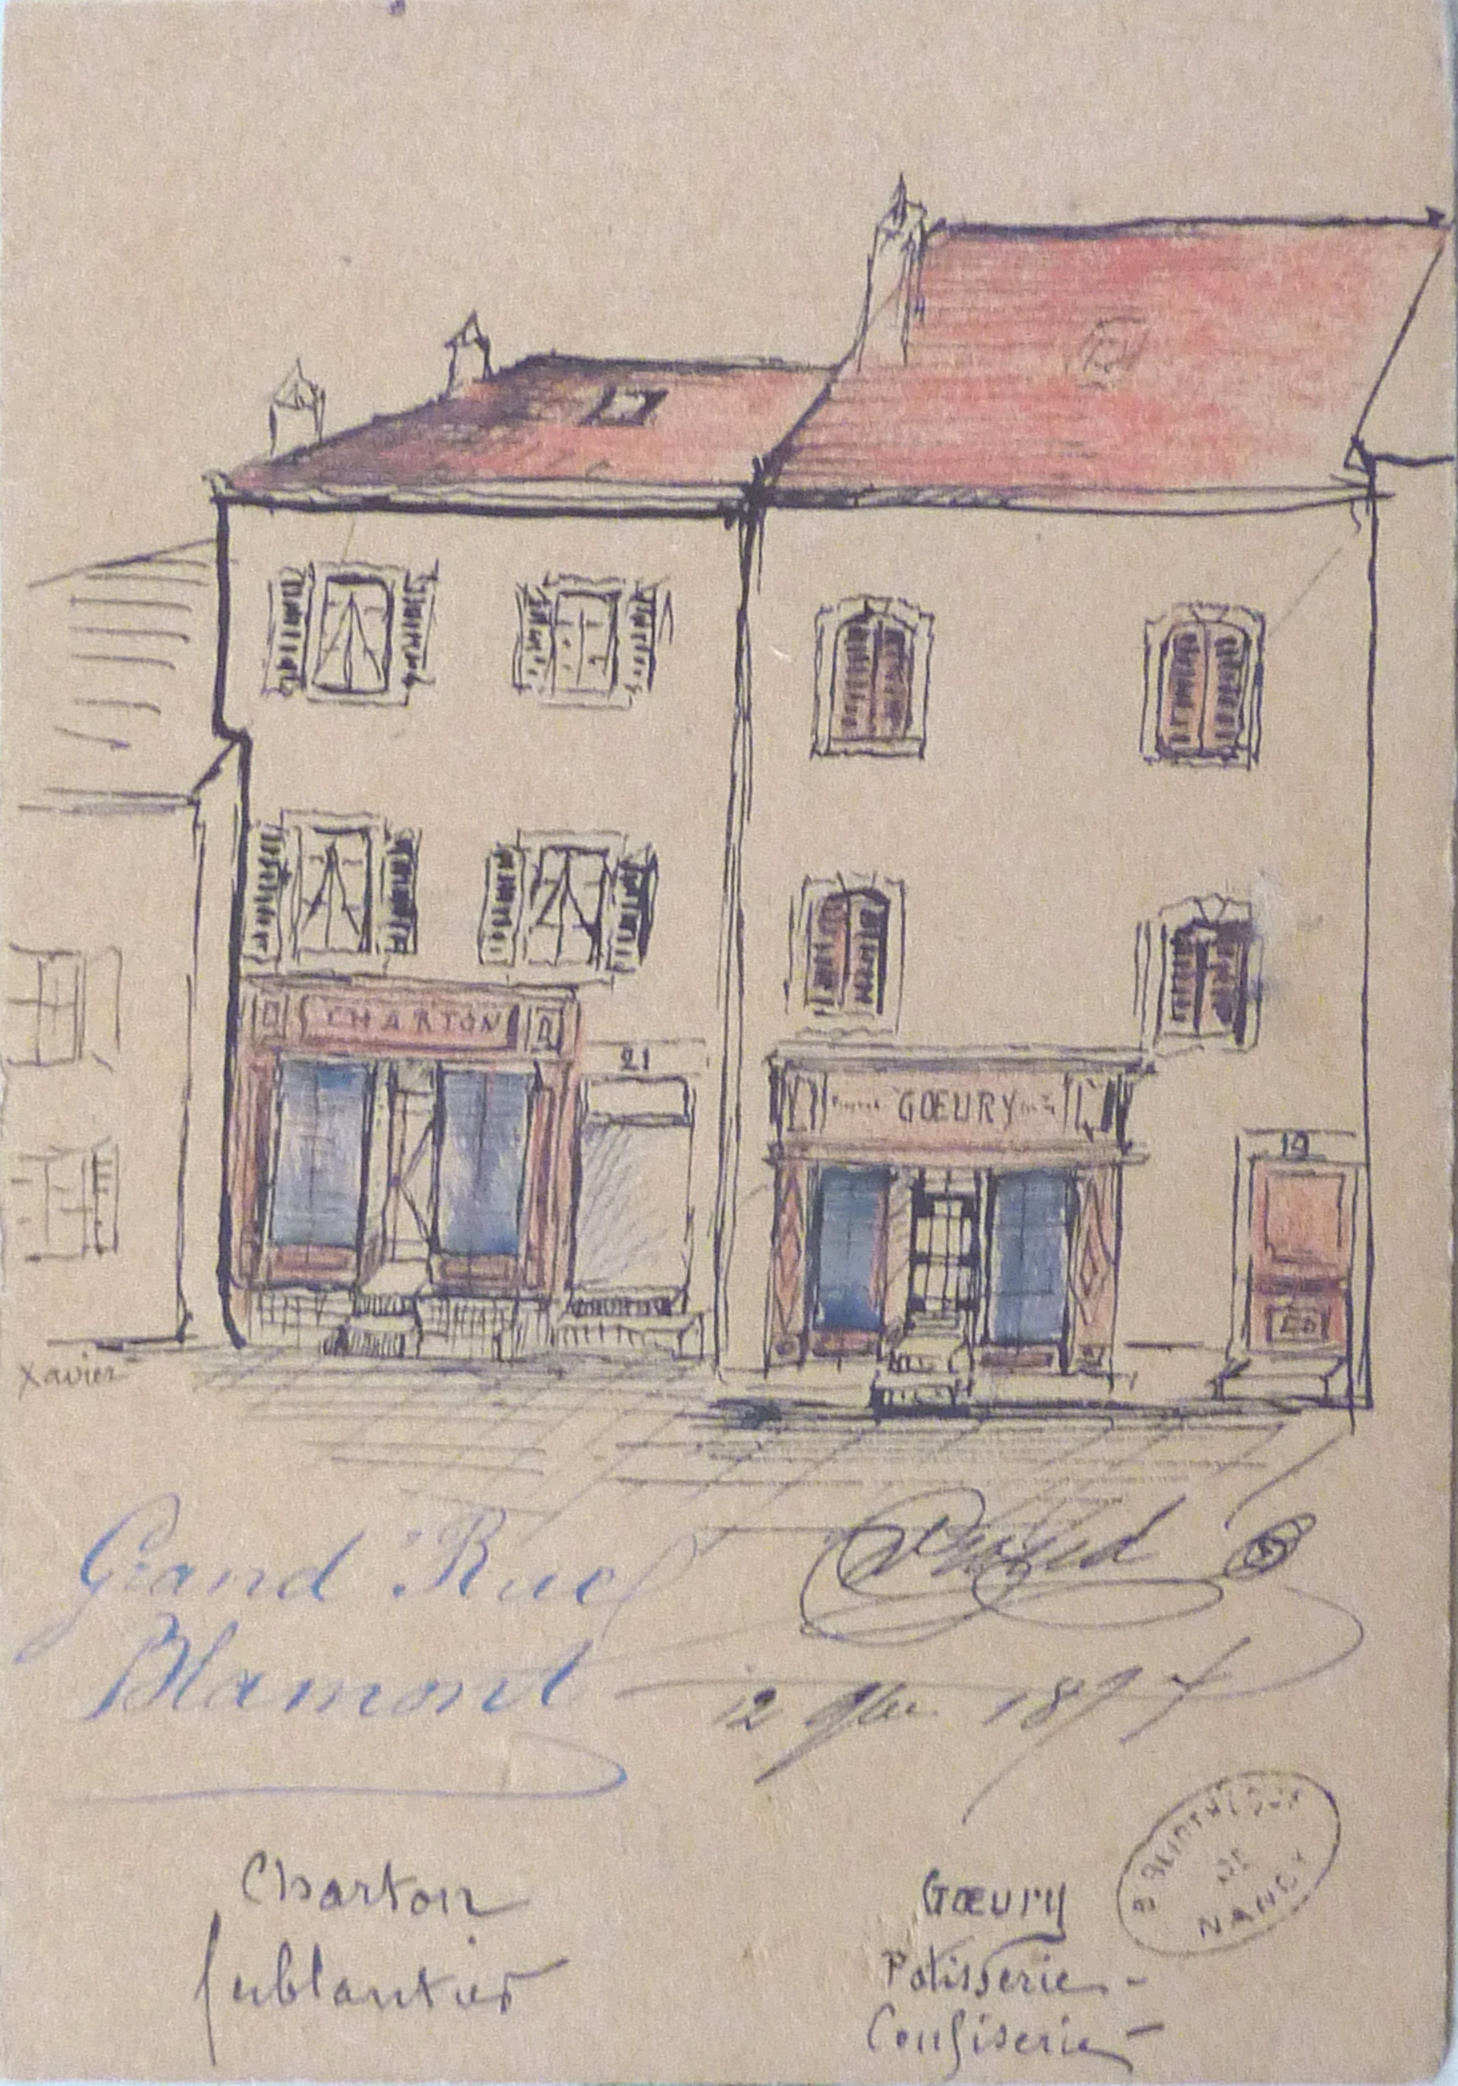 CHARTON
21
GŒURY
19
Xavier
Grand Rue
Blamont
12 9bre 1897
Charton
ferblantier
Gœury
Patisserie -
Confiserie -
BIBLIOTHÈQUE
DE
NANCY